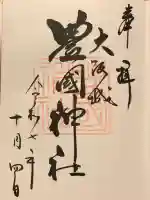 奉拝
大阪城
豊國神社
令和二年
十月四日